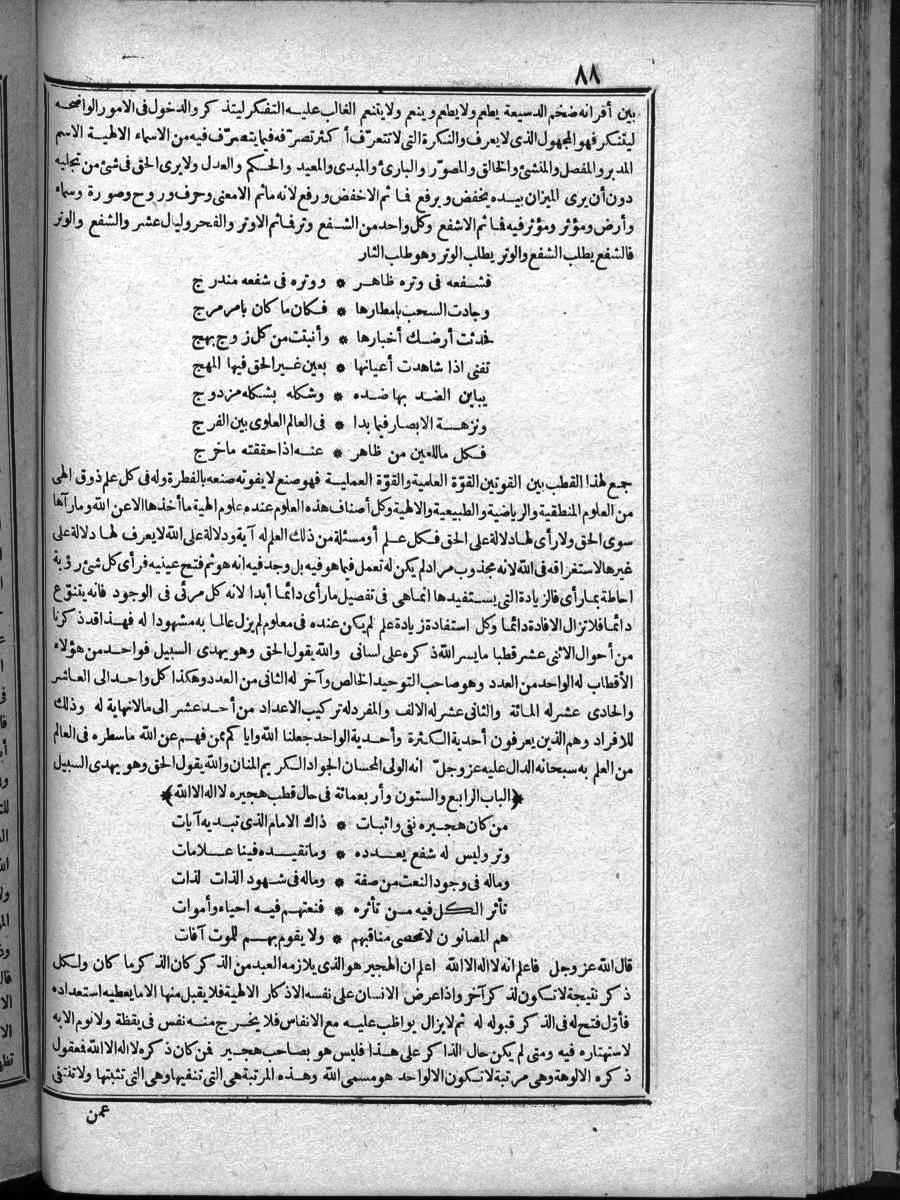 ٨٨
بين أقرانه ضخم الدسيعة يطعم ولا يطعم وينعم ولا يتنعم الغالب عليه التفكر ليتذكر والدخول في الامور الواضحه
ليتنكر فهو المجهول الذي لا يعرف والنكرة التي لا تتعرف أكثر تصرفه فيما يتصرف فيه من الاسماء الالهية الاسم
المدبر والمفصل والمنشئ والخالق والمصور والبارئ والمبدي والمعيد والحكم والعدل ولا يرى الحق في شئ من تجليه
دون أن يرى الميزان بيده يخفض ويرفع فما ثم الا خفض ورفع لانه ما ثم الا معنى وحرف وروح وصورة وسماء
وأرض ومؤثر ومؤثر فيه فما ثم الا شفع وكل واحد من الشفع وتر فما ثم الا وتر والفجر وليال عشر والشفع والوتر
فالشفع يطلب الشفع والوتر يطلب الوتر وهو طلب الثار
فشفعه في وتره ظاهر * ووتره في شفعه مندرج
وجادت السحب بامطارها * فكان ما كان بامر مرج
فحدثت أرضك أخبارها * وأنبتت من كل زوج بهج
تفنى اذا شاهدت أعيانها * بعين غير الحق فيها المهج
يباين الضد بها ضده * وشكله بشكله مزدوج
ونزهة الابصار فيما بدا * في العالم العلوي بين الفرج
فكل ما للعين من ظاهر * عنه اذا حققته ما خرج
جمع لهذا القطب بين القوتين القوّة العلمية والقوّة العملية فهو صنع لا يفوته صنعه بالفطرة وله في كل علم ذوق الهي
من العلوم المنطقية والرياضية والطبيعية والالهية وكل أصناف هذه العلوم عنده علوم الهية ما أخذها الا عن الله وما رآها
سوى الحق ولا رأى لها دلالة على الحق فكل علم أو مسئلة من ذلك العلم له آية ودلالة على الله لا يعرف لها دلالة على
غيره لاستغراقه في الله لانه مجذوب مراد لم يكن له تعمل فيما هو فيه بل وجد فيه انه هو ثم فتح عينيه فرأى كل شئ رؤية
احاطة بما رأى فالزيادة التي يستفيدها انما هي في تفصيل ما رأى دائما أبدا لانه كل مرئى في الوجود فانه يتنوّع
دائما فلا تزال الافادة دائما وكل استفادة زيادة علم لم يكن عنده في معلوم لم يزل عالما به مشهودا له فهذا قد ذكرنا
من أحوال الاثنى عشر قطبا ما يسر الله ذكره على لساني والله يقول الحق وهو يهدي السبيل فواحد من هؤلاء
الأقطاب له الواحد من العدد وهو صاحب التوحيد الخالص وآخر له الثاني من العدد وهكذا كل واحد الى العاشر
والحادي عشر له المائة والثاني عشر له الالف والمفرد له تركيب الاعداد من أحد عشر الى مالا نهاية له وذلك
للافراد وهم الذين يعرفون أحدية الكثرة وأحدية الواحد جعلنا الله واياكم ممن فهم عن الله ما سطره في العالم
من العلم به سبحانه الدال عليه عز وجل انه الولي المحسان الجواد الكريم المنان والله يقول الحق وهو يهدي السبيل
﴿الباب الرابع والستون وأربعمائة في حال قطب هجيره لا اله الا الله﴾
من كان هجيره نفي واثبات * ذاك الامام الذي تبديه آيات
وتر وليس له شفع يعدده * وما تقيده فينا علامات
وماله في وجود النعت من صفة * وماله في شهود الذات لذات
تأثر الكل فيه من تأثره * فنعتهم فيه احياء وأموات
هم المصانون لا تحصى مناقبهم * ولا يقوم بهم للموت آفات
قال الله عز وجل فاعلم انه لا اله الا الله اعلم ان الهجير هو الذي يلازمه العبد من الذكر كان الذكر ما كان ولكل
ذكر نتيجة لا تكون لذكر آخر واذا عرض الانسان على نفسه الاذكار الالهية فلا يقبل منها الا ما يعطيه استعداده
فأوّل فتح له في الذكر قبوله له ثم لا يزال يواظب عليه مع الانفاس فلا يخرج منه نفس في يقظة ولا نوم الا به
لاستهتاره فيه ومتى لم يكن حال الذاكر على هذا فليس هو بصاحب هجير فمن كان ذكره لا اله الا الله فمعقول
ذكره الالوهة وهي مرتبة لا تكون الا لواحد هو مسمى الله وهذه المرتبة هي التي تنفيها وهي التي تثبتها ولا تنتفي
عمن